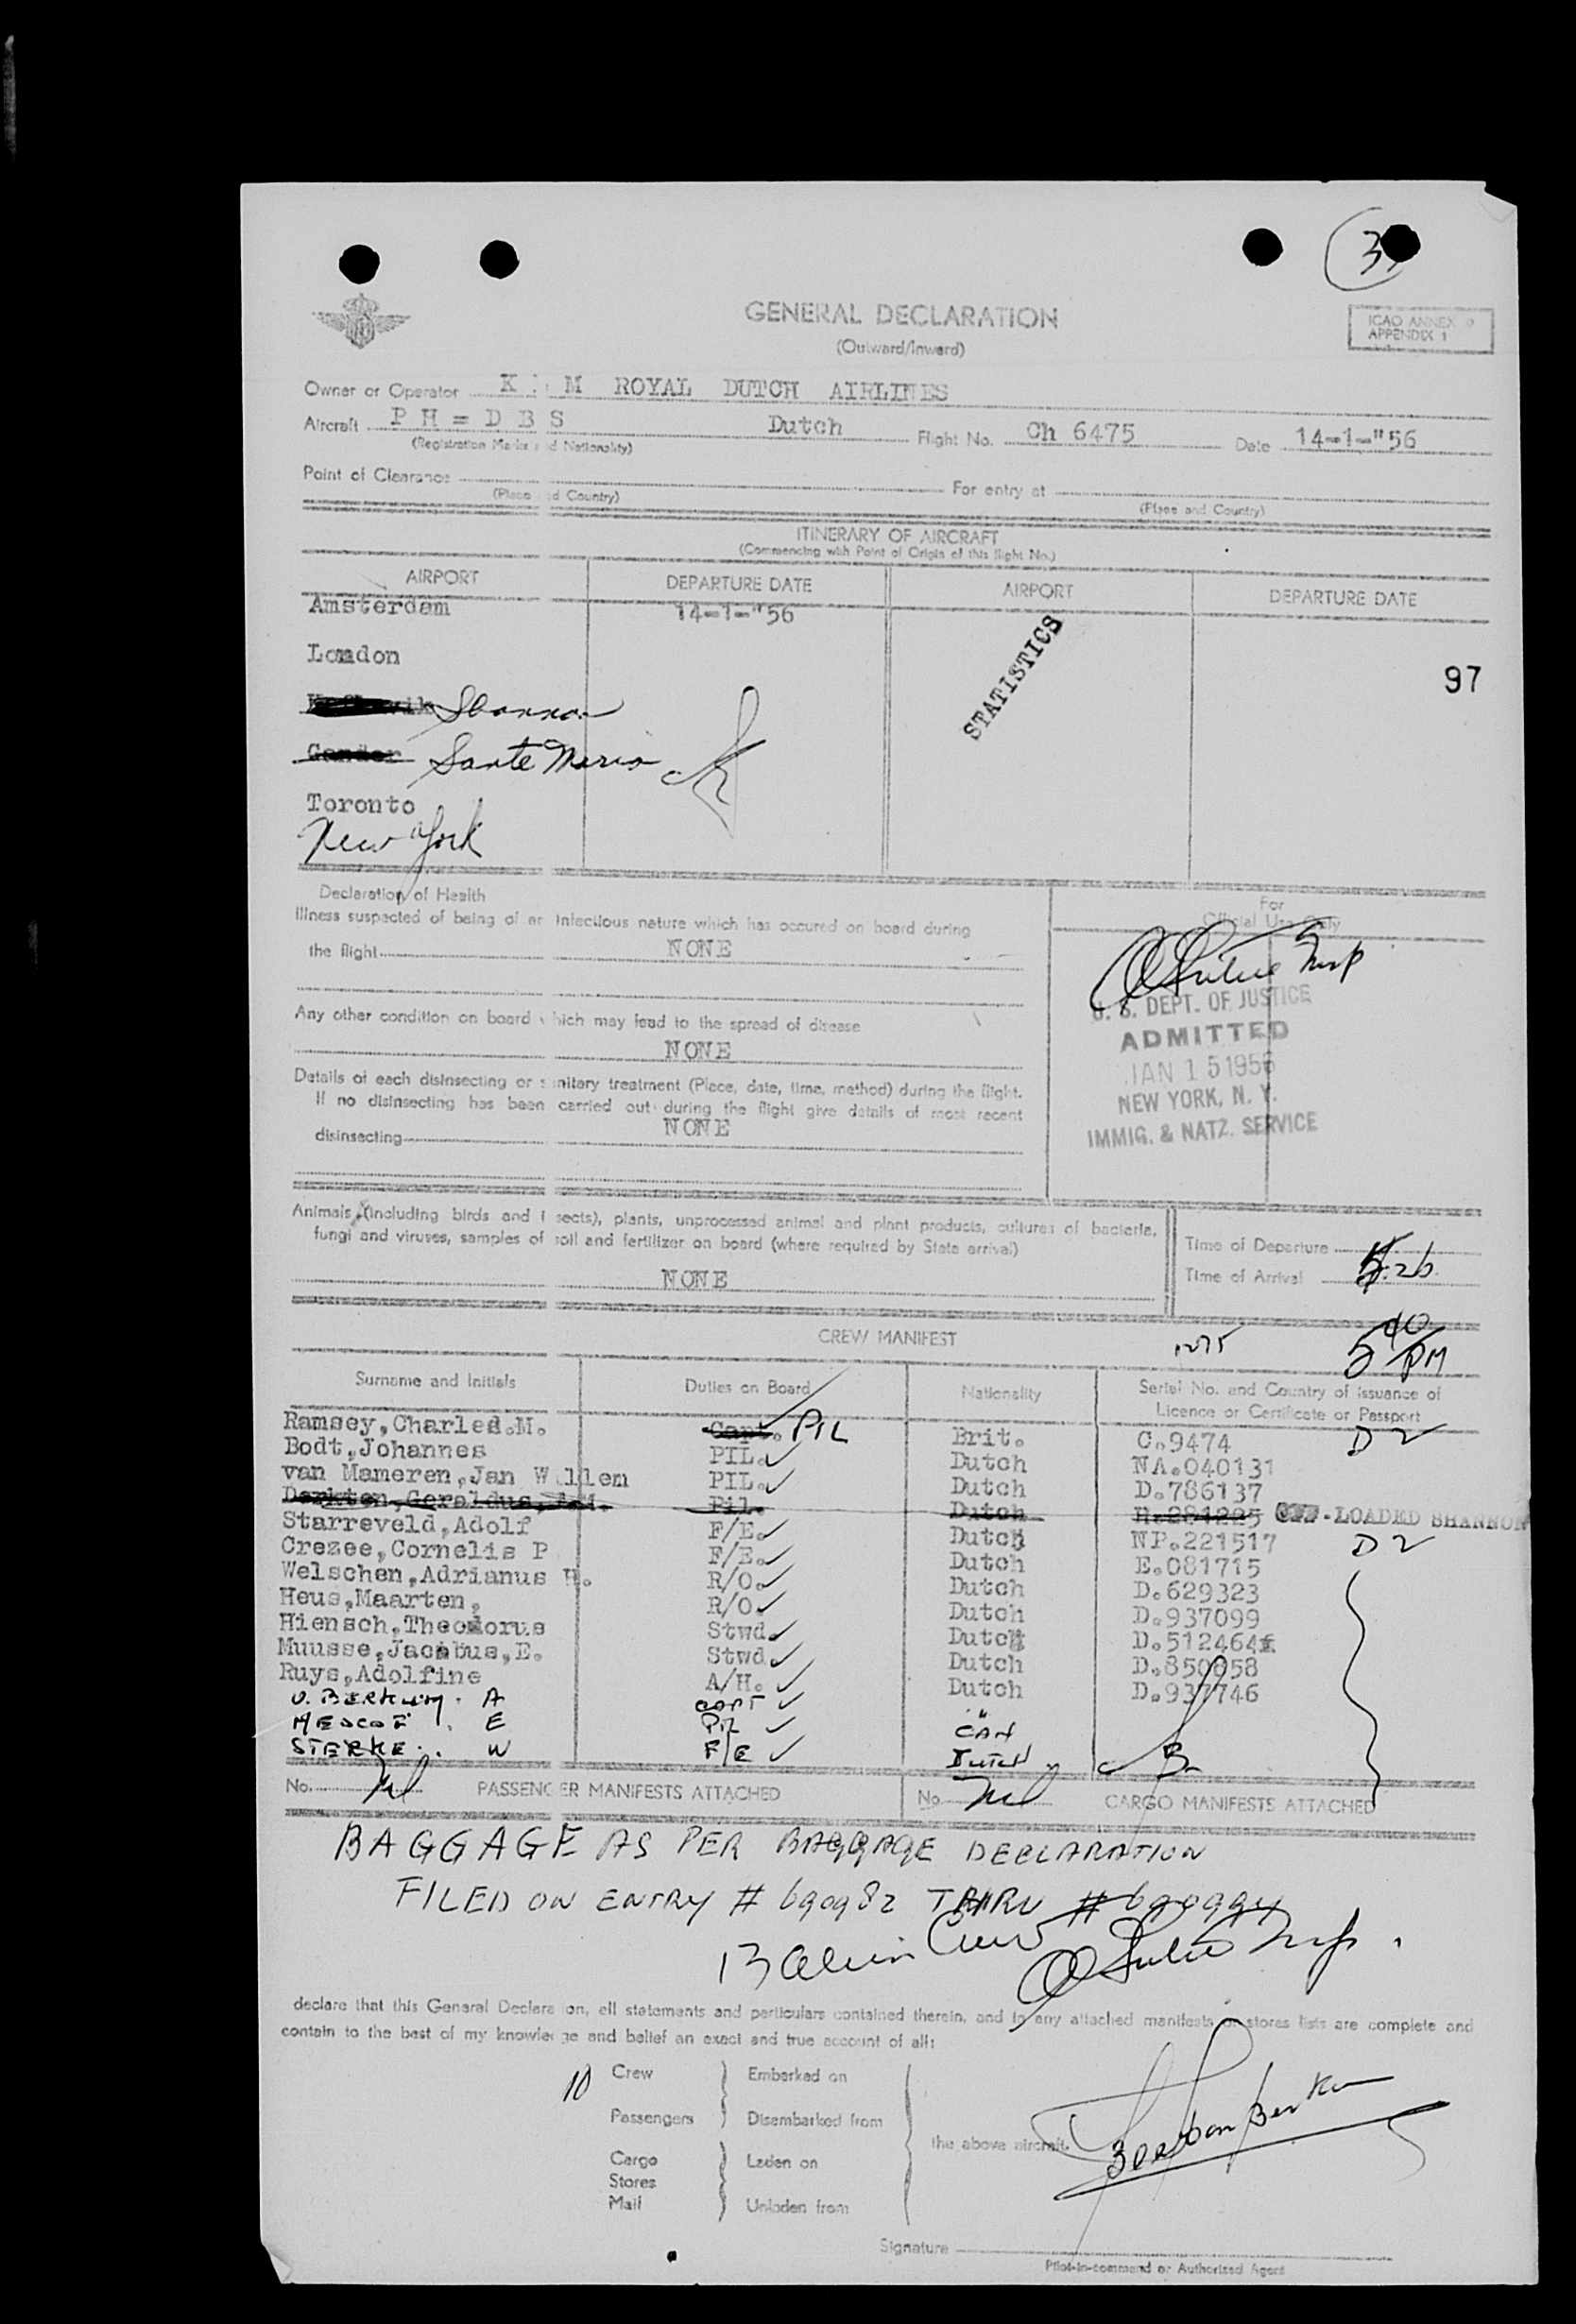 GENERAL DECLARATION
(Outward/Inward)
ICAO ANNEX 9
APPENDIX 1
Owner or Operator K L M ROYAL DUTCH AIRLINES
Aircraft P H = D B S Dutch Flight No. Ch 6475 Date 14-1-"56
(Registration Marks and Nationality)
Point of Clearance For entry at
(Place and Country) (Place and Country)
ITINERARY OF AIRCRAFT
(Commencing with Point of Origin of this flight No.)
AIRPORT DEPARTURE DATE AIRPORT DEPARTURE DATE
Amsterdam 14-1-"56
STATISTICS
London
97
Shannon
Gander Sante Maria
Toronto
New York
Declaration of Health
For
Official Use Only
Illness suspected of being of an infectious nature which has occured on board during
the flight NONE
U. S. DEPT. OF JUSTICE
ADMITTED
JAN 15 1956
NEW YORK, N. Y.
IMMIG. & NATZ. SERVICE
Any other condition on board which may lead to the spread of disease
NONE
Details of each disinsecting or sanitary treatment (Place, date, time, method) during the flight.
If no disinsecting has been carried out during the flight give details of most recent
disinsecting NONE
Animals (including birds and insects), plants, unprocessed animal and plant products, cultures of bacteria,
fungi and viruses, samples of soil and fertilizer on board (where required by State arrival)
NONE
Time of Departure
Time of Arrival
CREW MANIFEST
5 40 PM
Surname and Initials Duties on Board Nationality Serial No. and Country of Issuance of
Licence or Certificate or Passport
Ramsey,Charles.M. Capt. PIL Brit. C.9474 D 2
Bodt,Johannes PIL. Dutch NA.040131
van Mameren,Jan Willem PIL. Dutch D.786137
Derkten,Geraldus, Pil. Dutch H.281225 OFF-LOADED SHANNON
Starreveld,Adolf F/E. Dutch NP.221517 D 2
Crezee,Cornelis P F/E. Dutch E.081715
Welschen,Adrianus H. R/O. Dutch D.629323
Heus,Maarten, R/O. Dutch D.937099
Hiensch,Theodorus Stwd. Dutch D.512464
Muusse,Jacobus,E. Stwd. Dutch D.850858
Ruys,Adolfine A/H. Dutch D.937746
V. BERKUM. A CAPT "
E PIL CAN
STERKE. W F/E Dutch
No. Nil PASSENGER MANIFESTS ATTACHED No. Nil CARGO MANIFESTS ATTACHED
BAGGAGE AS PER BAGGAGE DECLARATION
FILED ON ENTRY # 690982 THRU # 690994
13 Alien Crew
declare that this General Declaration, all statements and particulars contained therein, and in any attached manifests or stores lists are complete and
contain to the best of my knowledge and belief an exact and true account of all:
10 Crew Embarked on
Passengers Disembarked from
the above aircraft.
Cargo Laden on
Stores
Mail Unladen from
Signature
Pilot-in-command or Authorized Agent